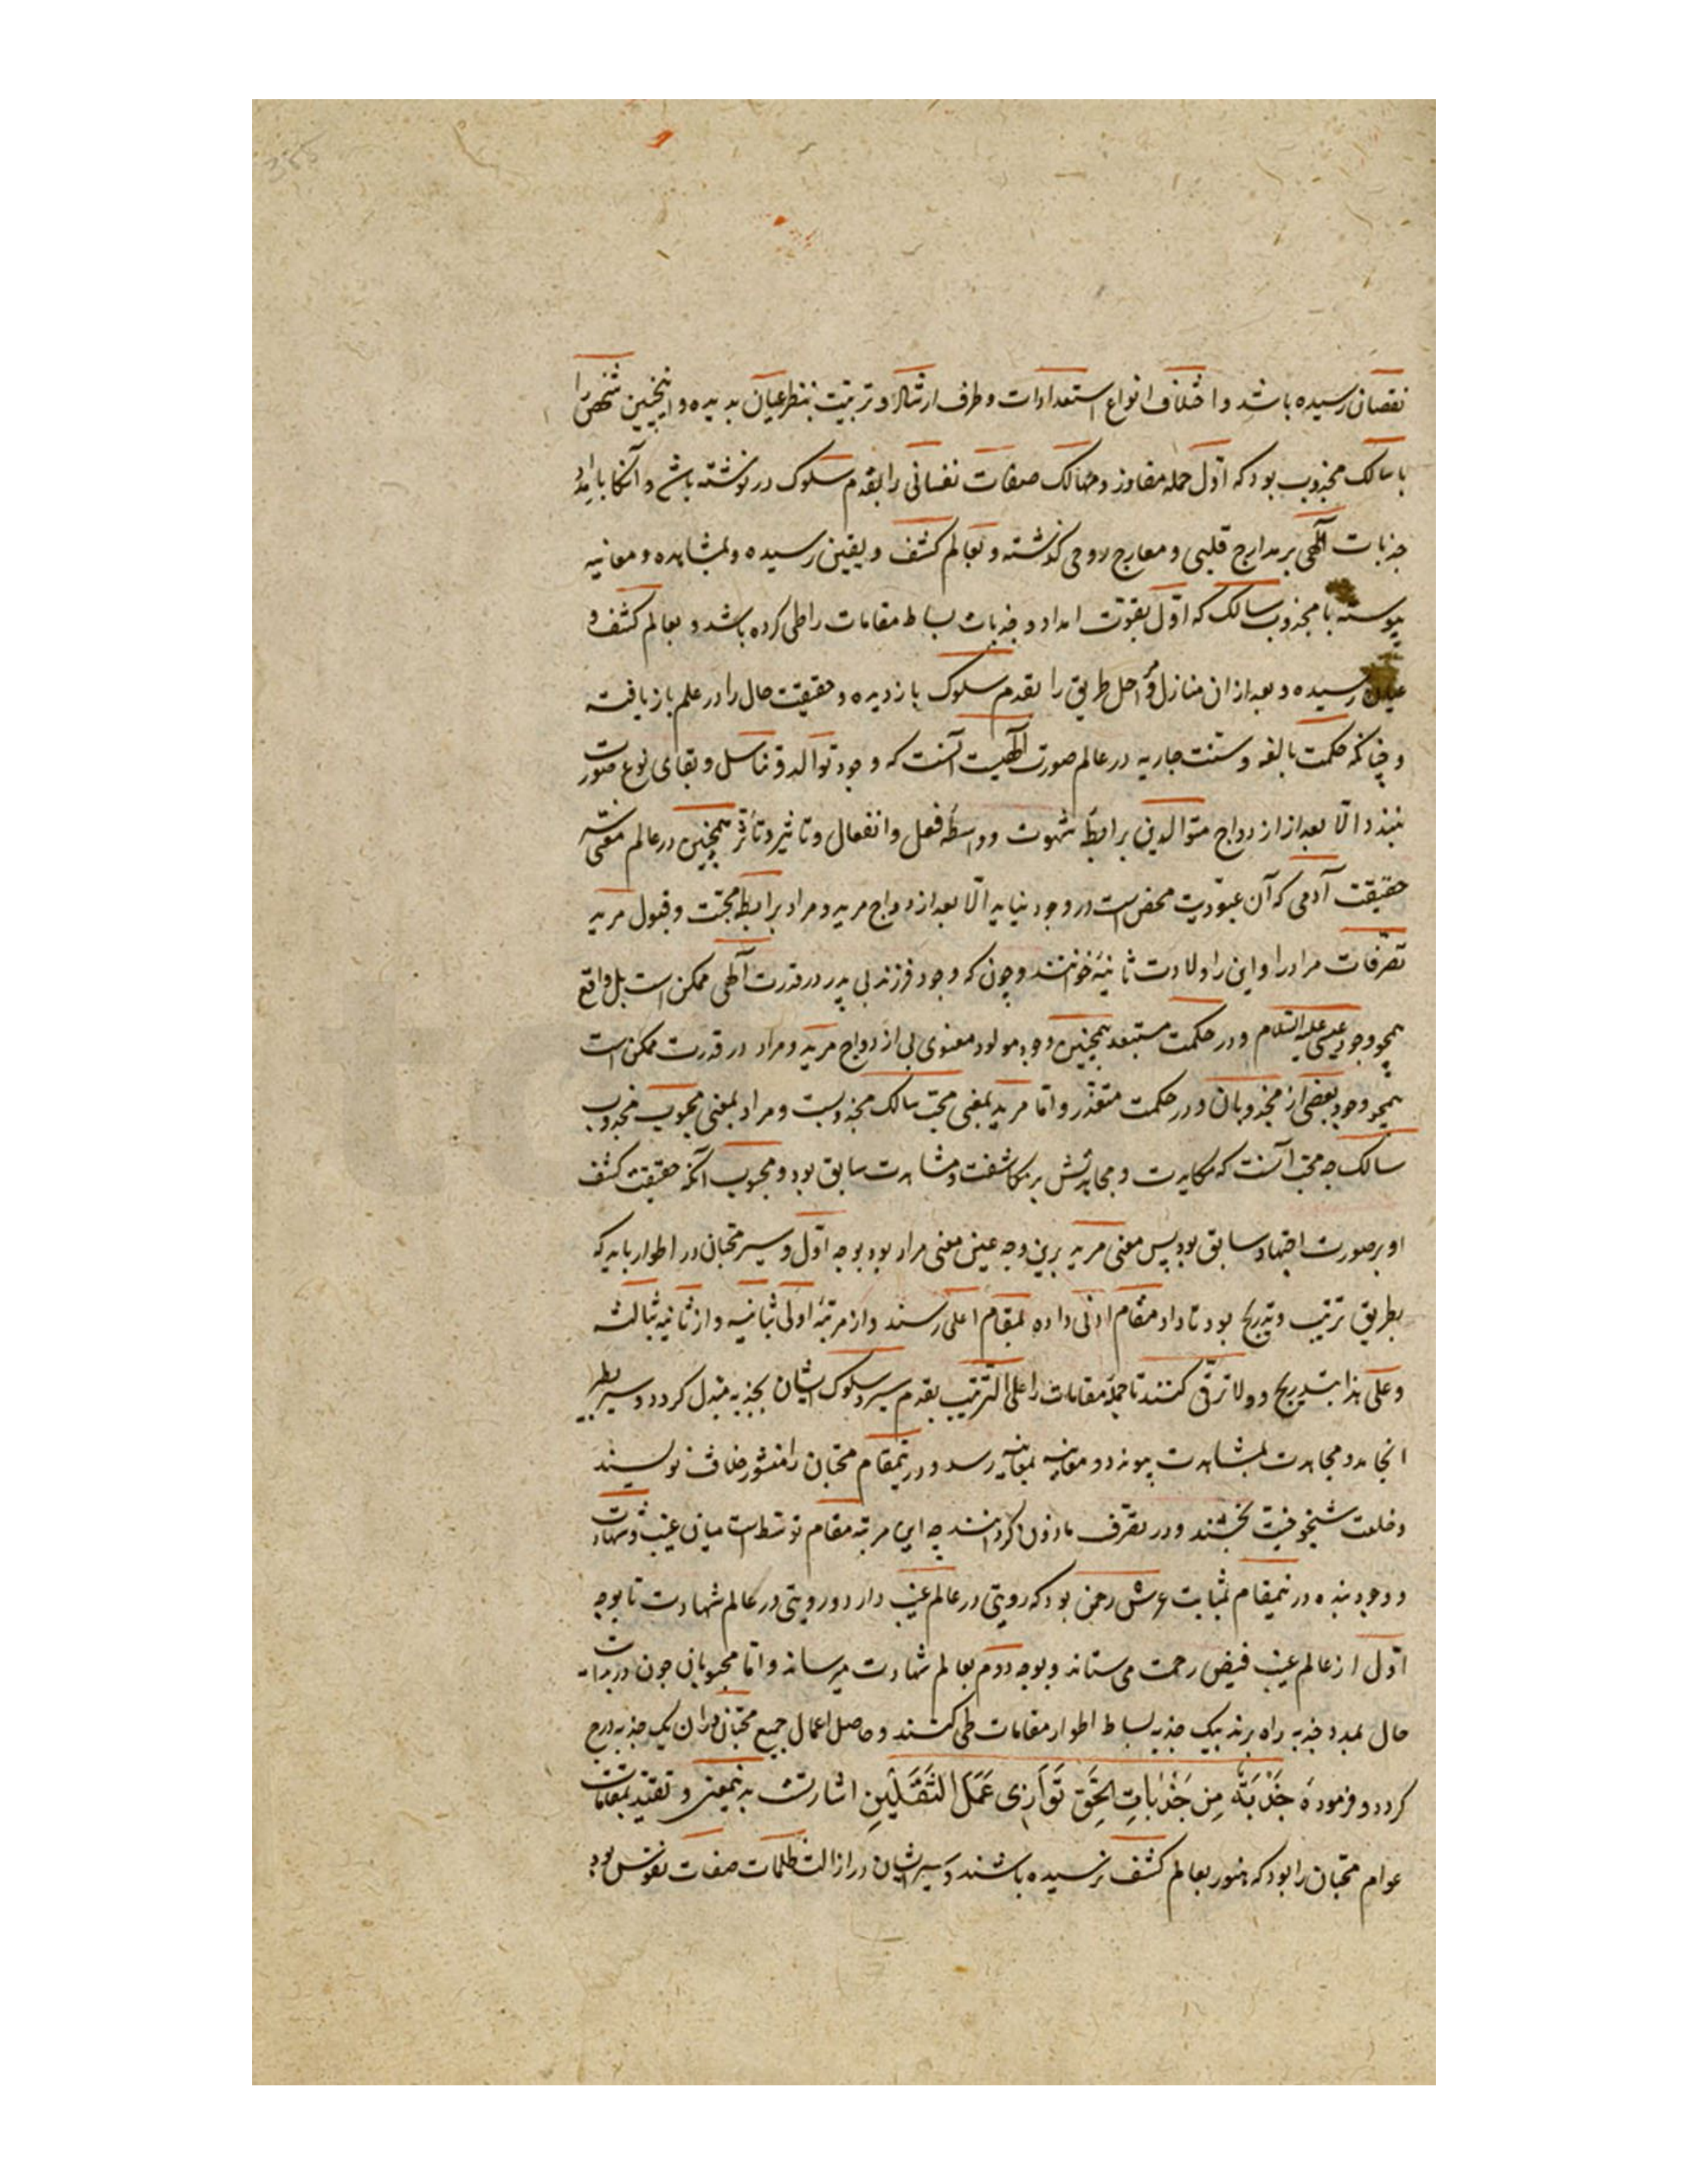 نقصان رسیده باشد و اختلاف انواع استعدادات و طرف ارشاد و تربیت بنظر عیان بدیده و اینچنین شخص را
یا سالک مجذوب بود که اول جمله مفاوز و مهالک صفات نفسانی را بقدم سلوک در نوشته باشد و آنگاه بامداد
جذبات آلهی بر مدارج قلبی و معارج روحی گذشته و بعالم کشف و یقین رسیده و بمشاهده و معاینه
پیوسته یا مجذوب سالک که اول بقوت امداد و جذبات بساط مقامات را طی کرده باشد و بعالم کشف و
عیان رسیده و بعد از ان منازل و مراحل طریق را بقدم سلوک باز دیده و حقیقت حال را در علم باز یافته
و چنانکه حکمت بالغه و سنت جاریه در عالم صورت آلهیت آنست که وجود توالد و تناسل و بقای نوع صورت
نبندد الّا بعد از ازدواج متوالدین برابطهٔ شهوت و واسطهٔ فعل و انفعال و تاثیر و تأثر همچنین در عالم معنی
حقیقت آدمی که آن عبودیت محض است در وجود نیاید الّا بعد از دواج مرید و مراد برابطهٔ محبت و قبول مرید
تصرفات مراد را و این را ولادت ثانیه خوانند و چون که وجود فرزند بی پدر در قدرت آلهی ممکن است بل واقع
همچو وجود عیسی علیه السلام و در حکمت مستبعد همچنین وجود مولود معنوی بی ازدواج مرید و مراد در قدرت ممکن است
همچو وجود بعضی از مجذوبان و در حکمت متعذر و اما مرید بمعنی محب سالک مجذوبست و مراد بمعنی محبوب مجذوب
سالک چه محب آنست که مکابدت و مجاهدتش بر مکاشفت و مشاهدت سابق بود و محبوب آنکه حقیقت کشف
او بر صورت اجتهاد سابق بود پس معنی مرید برین وجه عین معنی مراد بود بوجه اول و سیر محبان در اطوار باید که
بطریق ترتیب و تدریج بود تا داد مقام ادنی داده بمقام اعلی رسند و از مرتبهٔ اولی بثانیه و از ثانیه بثالثه
و علی هذا بتدریج و ولا ترقی کنند تا جملهٔ مقامات را علی الترتیب بقدم سیر و سلوک ایشان بجذبه مبدل کردد و سیر بطیر
انجامد و مجاهدت بمشاهدت پیوندد و مغایبه بمعاینه رسد و درینمقام محبان را منشور خلافت نویسند
و خلعت شیخوخیت بخشند و در تصرف ماذون گردانند چه این مرتبه مقام توسط است میان غیب و شهادت
و وجود بنده درینمقام بمثابت عرش رحمن بود که رویتی در عالم غیب دارد و رویتی در عالم شهادت تا بوجه
اول از عالم غیب فیض رحمت می ستاند و بوجه دوم بعالم شهادت میرساند و اما محبوبان چون در بدایت
حال بمدد جذبه راه برند بیک جذبه بساط اطوار مقامات طی کنند و حاصل اعمال جمیع محبان در ان یک جذبه درج
کردد و فرمودهٔ جَذْبَةٌ مِن جَذَباتِ الحَق تَوَازِی عَمَلَ الثَقَلَیْنِ اشارتست بدینمعنی و تقید بمقامات
عوام محبان را بود که هنوز بعالم کشف نرسیده باشند و سیر ایشان در ازالت ظلمات صفات نفوس بود